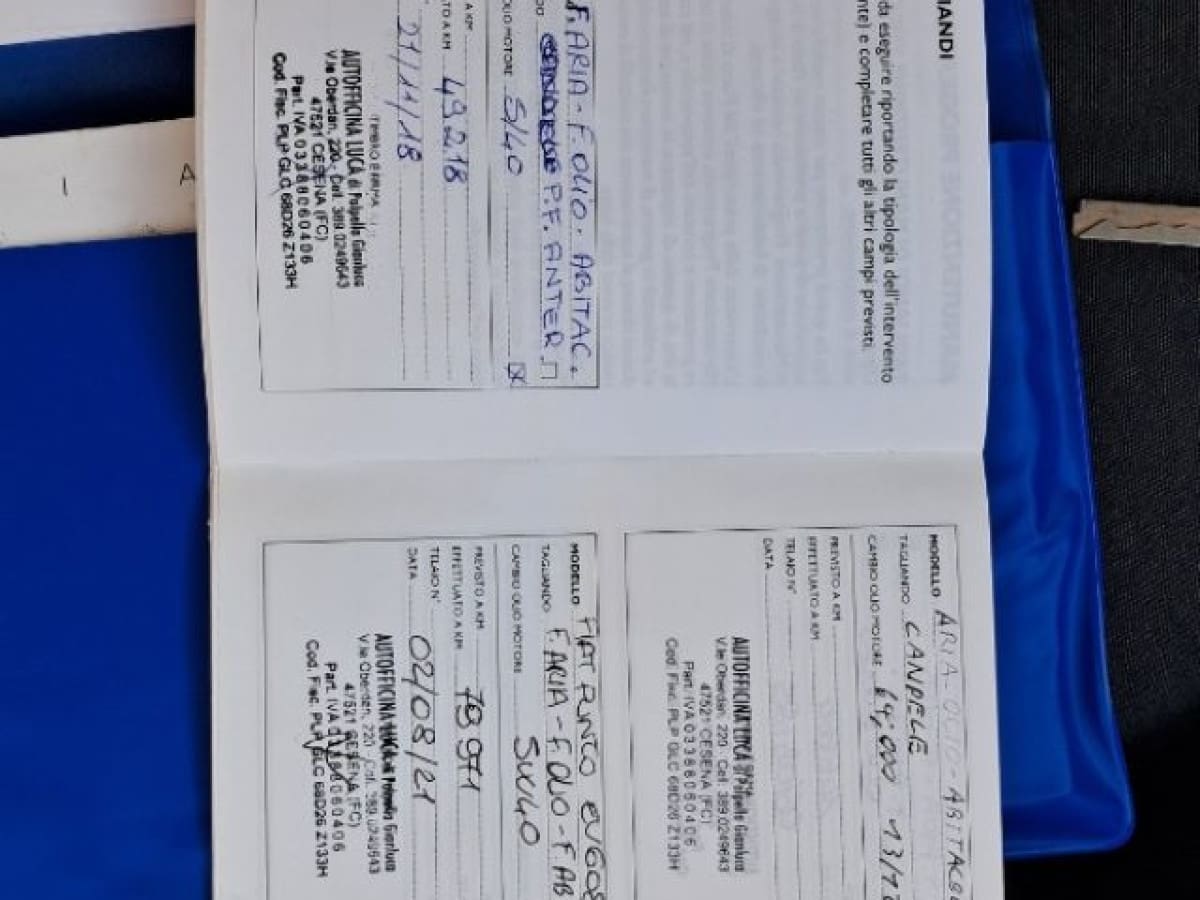 MANDI
da eseguire riportando la tipologia dell'intervento
nte) e completare tutti gli altri campi previsti.
F. ARIA - F. OLIO - ABITAC.
P.F. ANTER.
OLIO MOTORE 5/40
A KM
TO A KM 49218
21/11/18
TIMBRO E FIRMA
AUTOFFICINA LUCA di Polpelle Gianluca
V.le Oberdan, 220 - Cel. 389.0249643
47521 CESENA (FC)
Part. IVA 03388060406
Cod. Fisc. PLP GLC 68D26 Z133H
MODELLO ARIA - OLIO - ABITAC
TAGLIANDO CANDELE
CAMBIO OLIO MOTORE 64,000 13/12
PREVISTO A KM
EFFETTUATO A KM
TELAIO N°
DATA
AUTOFFICINA LUCA di Polpelle Gianluca
V.le Oberdan, 220 - Cell. 389.0249643
47521 CESENA (FC)
Part. IVA 03388060406
Cod. Fisc. PLP GLC 68D26 Z133H
MODELLO FIAT PUNTO EVO
TAGLIANDO F. ARIA - F. OLIO - F. AB
CAMBIO OLIO MOTORE 5W40
PREVISTO A KM
EFFETTUATO A KM 79971
TELAIO N°
DATA 02/08/21
AUTOFFICINA LUCA di Polpelle Gianluca
V.le Oberdan, 220 - Cel. 389.0249643
47521 CESENA (FC)
Part. IVA 03388060406
Cod. Fisc. PLP GLC 68D26 Z133H